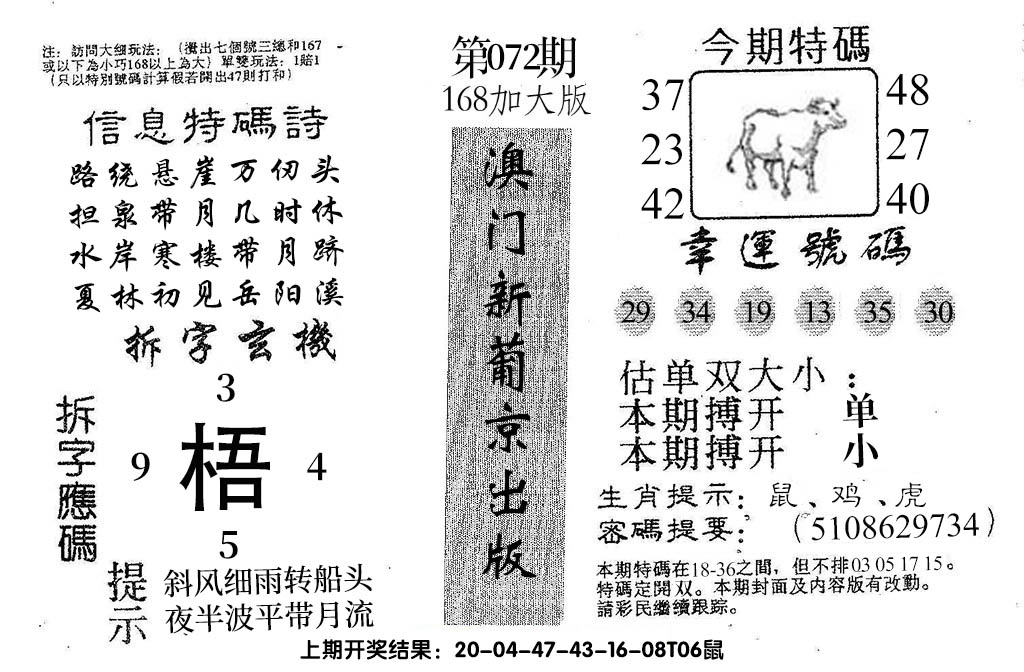 注：訪問大细玩法：（攪出七個號三總和167
或以下為小巧168以上為大）單雙玩法：1賠1
（只以特別號碼計算假若開出47則打和）
信息特碼詩
路绕悬崖万仞头
担泉带月几时休
水岸寒楼带月跻
夏林初见岳阳溪
拆字玄機
3
拆字應碼
9 梧 4
5
提示
斜风细雨转船头
夜半波平带月流
第072期
168加大版
澳门新葡京出版
今期特碼
37 48
23 27
42 40
幸運號碼
29 34 19 13 35 30
估单双大小：
本期搏开 单
本期搏开 小
生肖提示：鼠、鸡、虎
密碼提要：（5108629734）
本期特碼在18-36之間，但不排03 05 17 15。
特碼定開双。本期封面及内容版有改動。
請彩民繼續跟踪。
上期开奖结果：20-04-47-43-16-08T06鼠